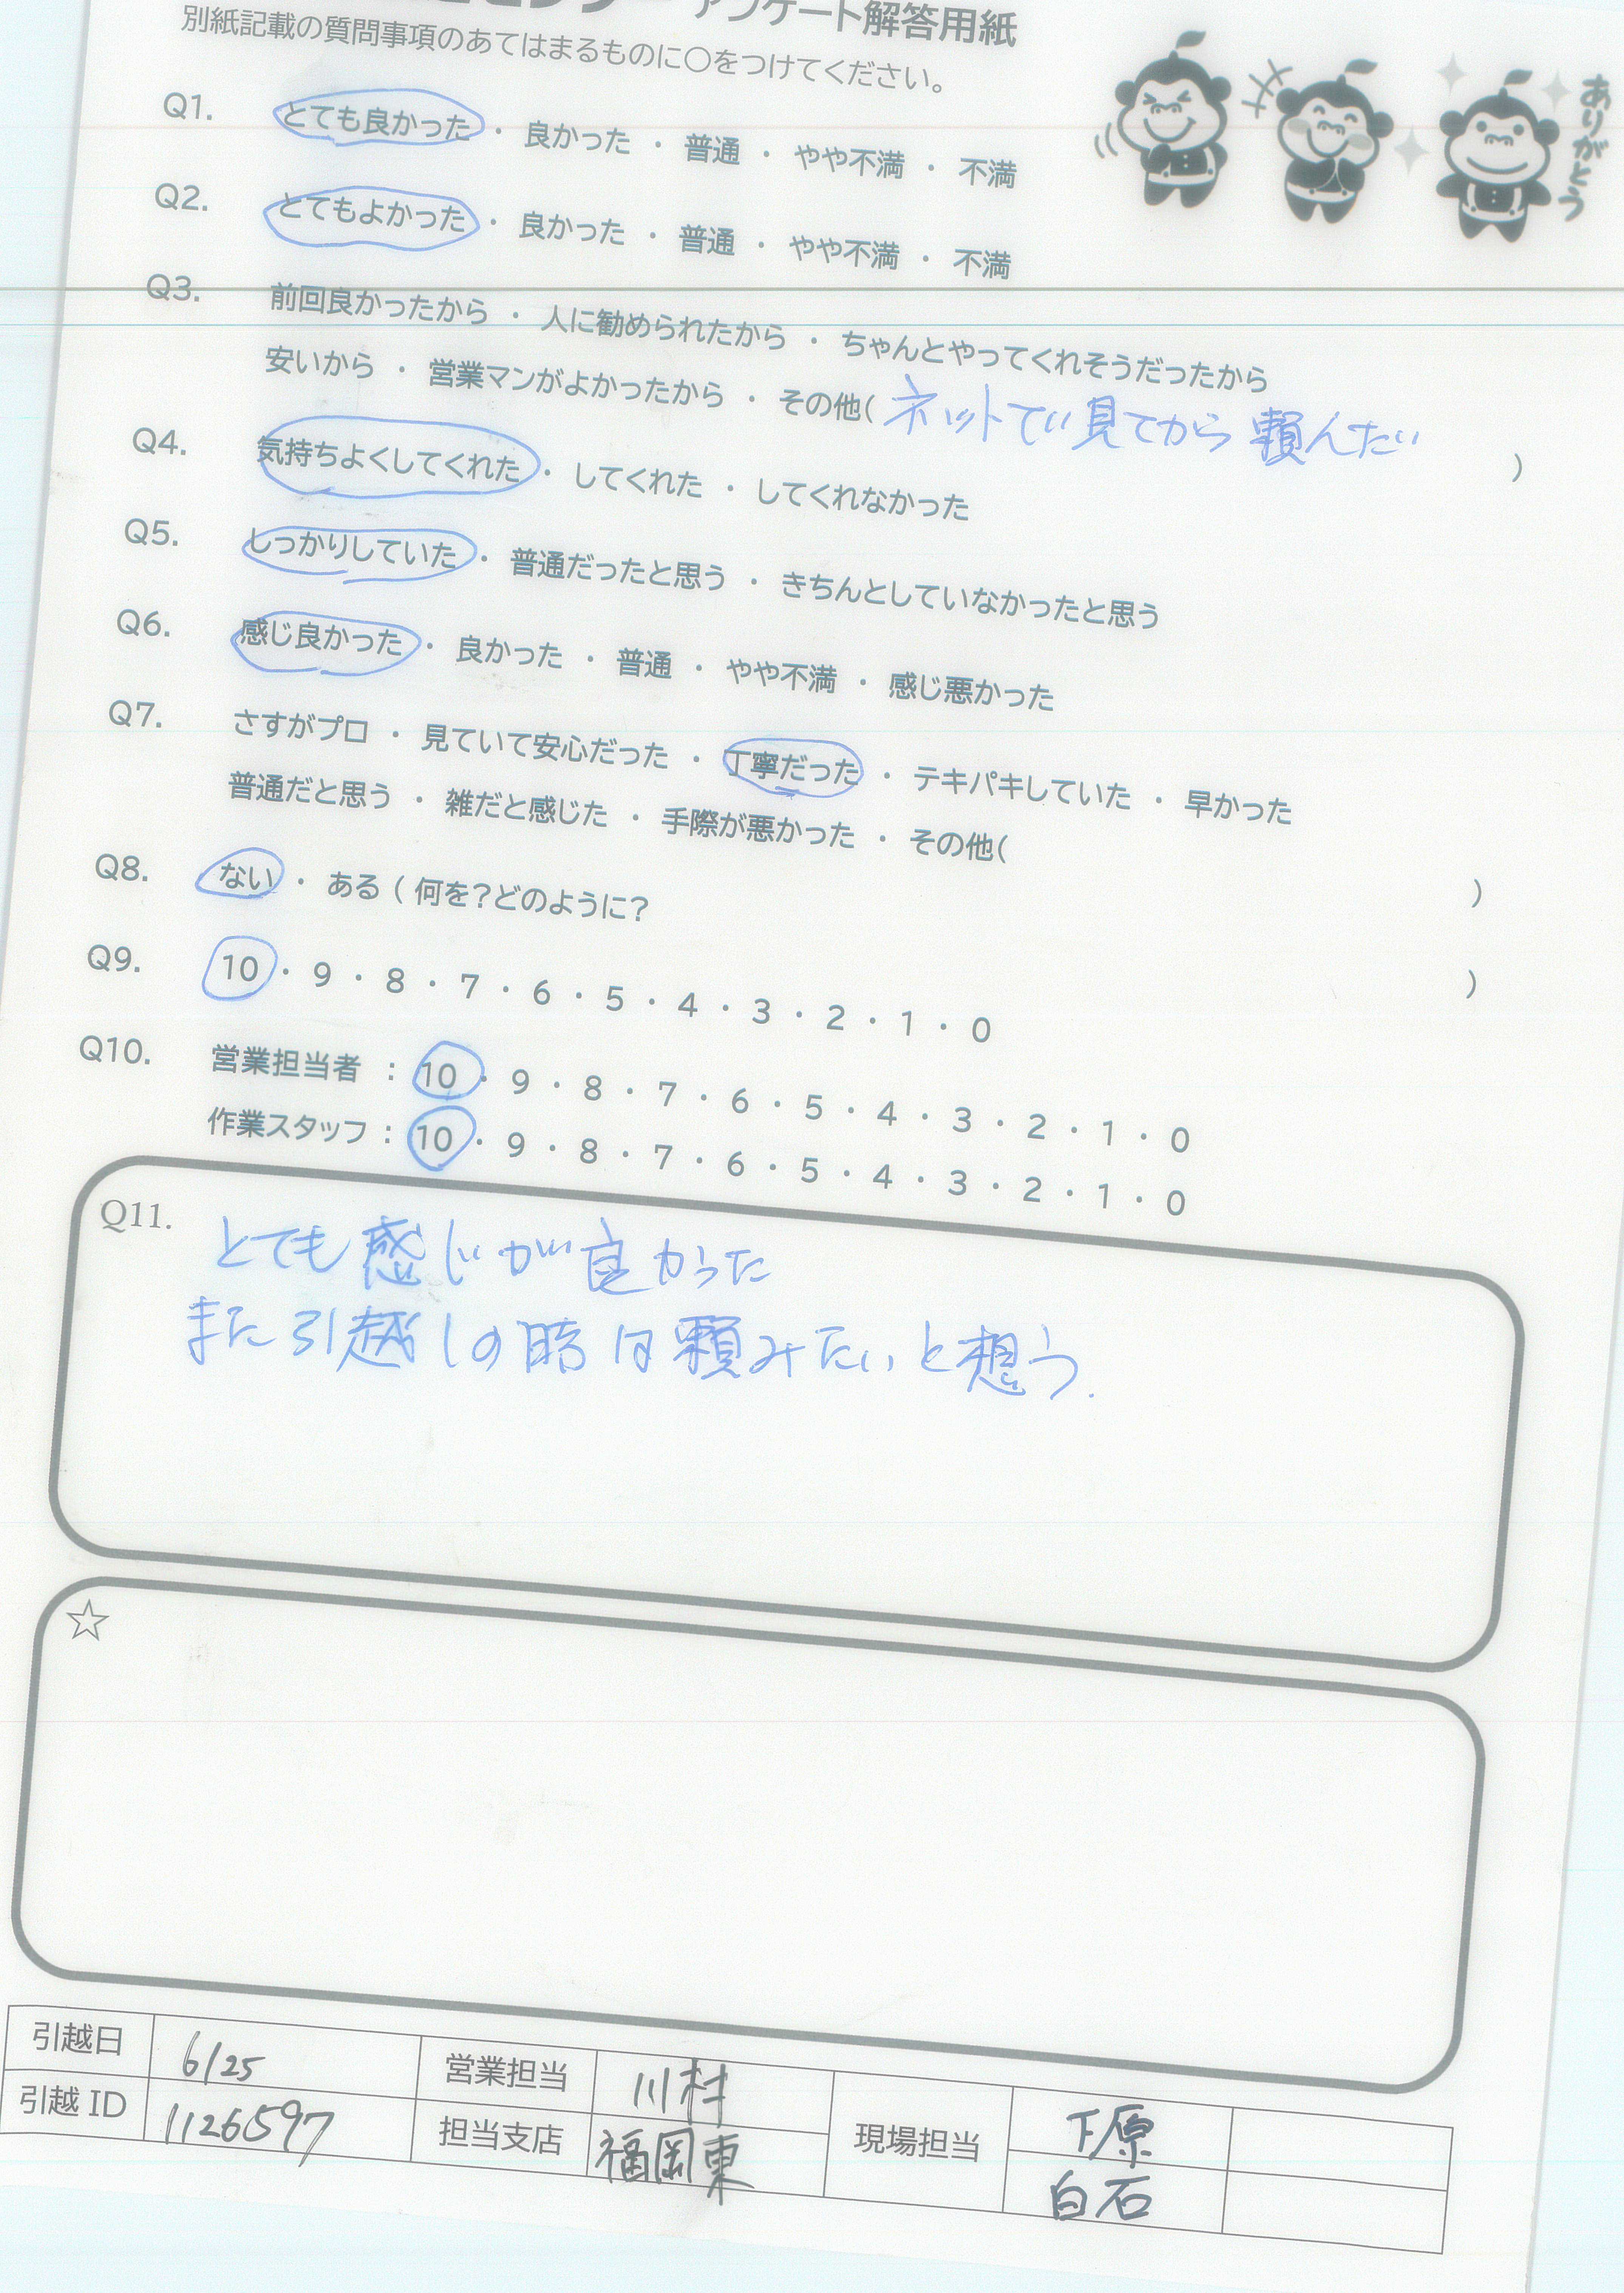 アンケート解答用紙
別紙記載の質問事項のあてはまるものに○をつけてください。
ありがとう
Q1. とても良かった ・ 良かった ・ 普通 ・ やや不満 ・ 不満
Q2. とてもよかった ・ 良かった ・ 普通 ・ やや不満 ・ 不満
Q3. 前回良かったから ・ 人に勧められたから ・ ちゃんとやってくれそうだったから
安いから ・ 営業マンがよかったから ・ その他( ネットで見てから頼んだ )
Q4. 気持ちよくしてくれた ・ してくれた ・ してくれなかった
Q5. しっかりしていた ・ 普通だったと思う ・ きちんとしていなかったと思う
Q6. 感じ良かった ・ 良かった ・ 普通 ・ やや不満 ・ 感じ悪かった
Q7. さすがプロ ・ 見ていて安心だった ・ 丁寧だった ・ テキパキしていた ・ 早かった
普通だと思う ・ 雑だと感じた ・ 手際が悪かった ・ その他( )
Q8. ない ・ ある ( 何を?どのように? )
Q9. 10 ・ 9 ・ 8 ・ 7 ・ 6 ・ 5 ・ 4 ・ 3 ・ 2 ・ 1 ・ 0
Q10. 営業担当者 : 10 ・ 9 ・ 8 ・ 7 ・ 6 ・ 5 ・ 4 ・ 3 ・ 2 ・ 1 ・ 0
作業スタッフ : 10 ・ 9 ・ 8 ・ 7 ・ 6 ・ 5 ・ 4 ・ 3 ・ 2 ・ 1 ・ 0
Q11. とても感じが良かった
また引越しの時は頼みたいと想う.
☆
引越日 6/25 営業担当 川村 現場担当 下原
引越 ID 1126597 担当支店 福岡東 白石